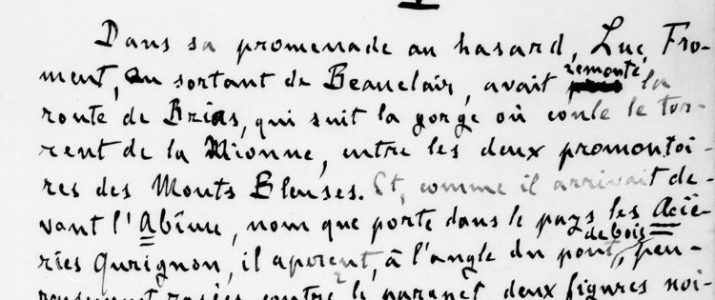 I
Dans sa promenade au hasard, Luc Fro-
ment, en sortant de Beauclair, avait remonté la
route de Brias, qui suit la gorge où coule le tor-
rent de la Mionne, entre les deux promontoi-
res des Monts Bleuses. Et, comme il arrivait de-
vant l'Abîme, nom que porte dans le pays les Acié-
ries Qurignon, il aperçut, à l'angle du pont de bois, peu-
reusement rasées contre le parapet deux figures noi-